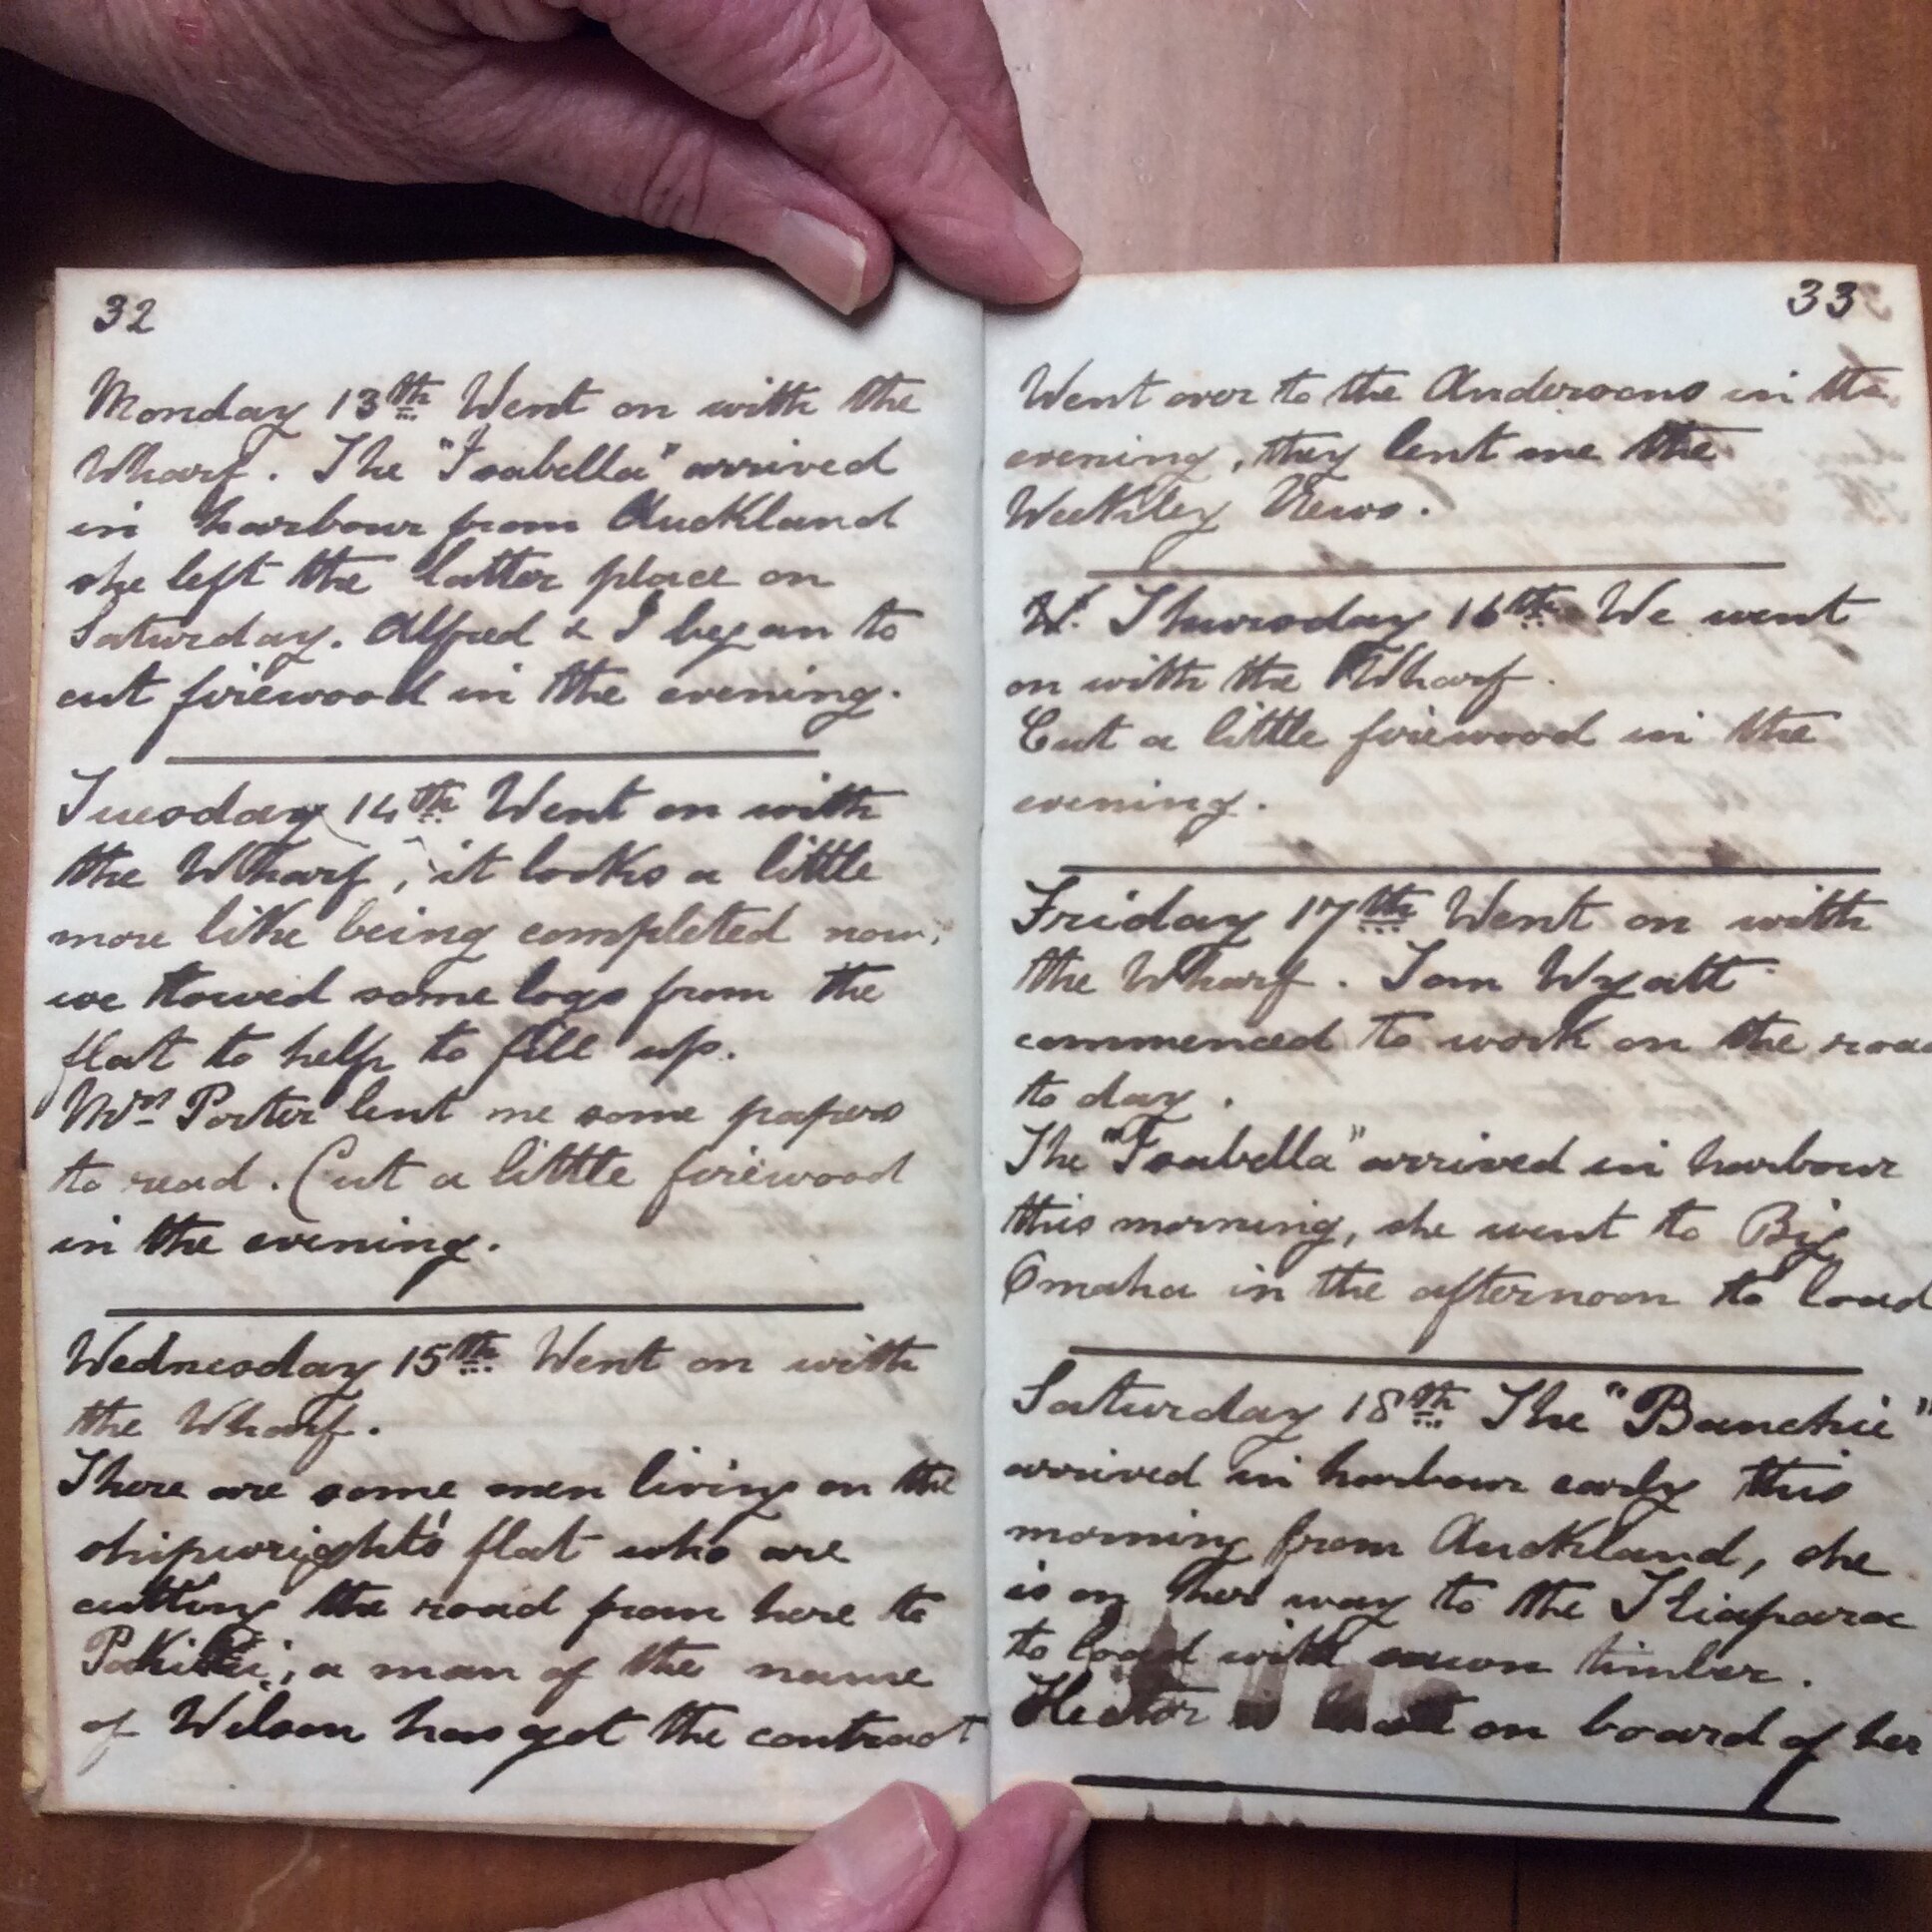 32
Monday 13th Went on with the
Wharf. The "Isabella" arrived
in harbour from Auckland
she left the latter place on
Saturday. Alfred & I began to
cut firewood in the evening.
Tuesday 14th Went on with
the Wharf, it looks a little
more like being completed now,
we towed some logs from the
flat to help to fill up.
Mrs Porter lent me some papers
to read. Cut a little firewood
in the evening.
Wednesday 15th Went on with
the Wharf.
There are some men living on the
shipwright's flat who are
cutting the road from here to
Pakiri, a man of the name
of Wilson has got the contract
33
Went over to the Andersons in the
evening, they lent me the
Weekley News.
Thursday 16th We went
on with the Wharf.
Cut a little firewood in the
evening.
Friday 17th Went on with
the Wharf. Tom Wyatt
commenced to work on the road
to day.
The "Isabella" arrived in harbour
this morning, she went to Big
Omaha in the afternoon to load
Saturday 18th The "Banchie"
arrived in harbour early this
morning from Auckland, she
is on her way to the
to load with sawn timber.
Hector is on board of her